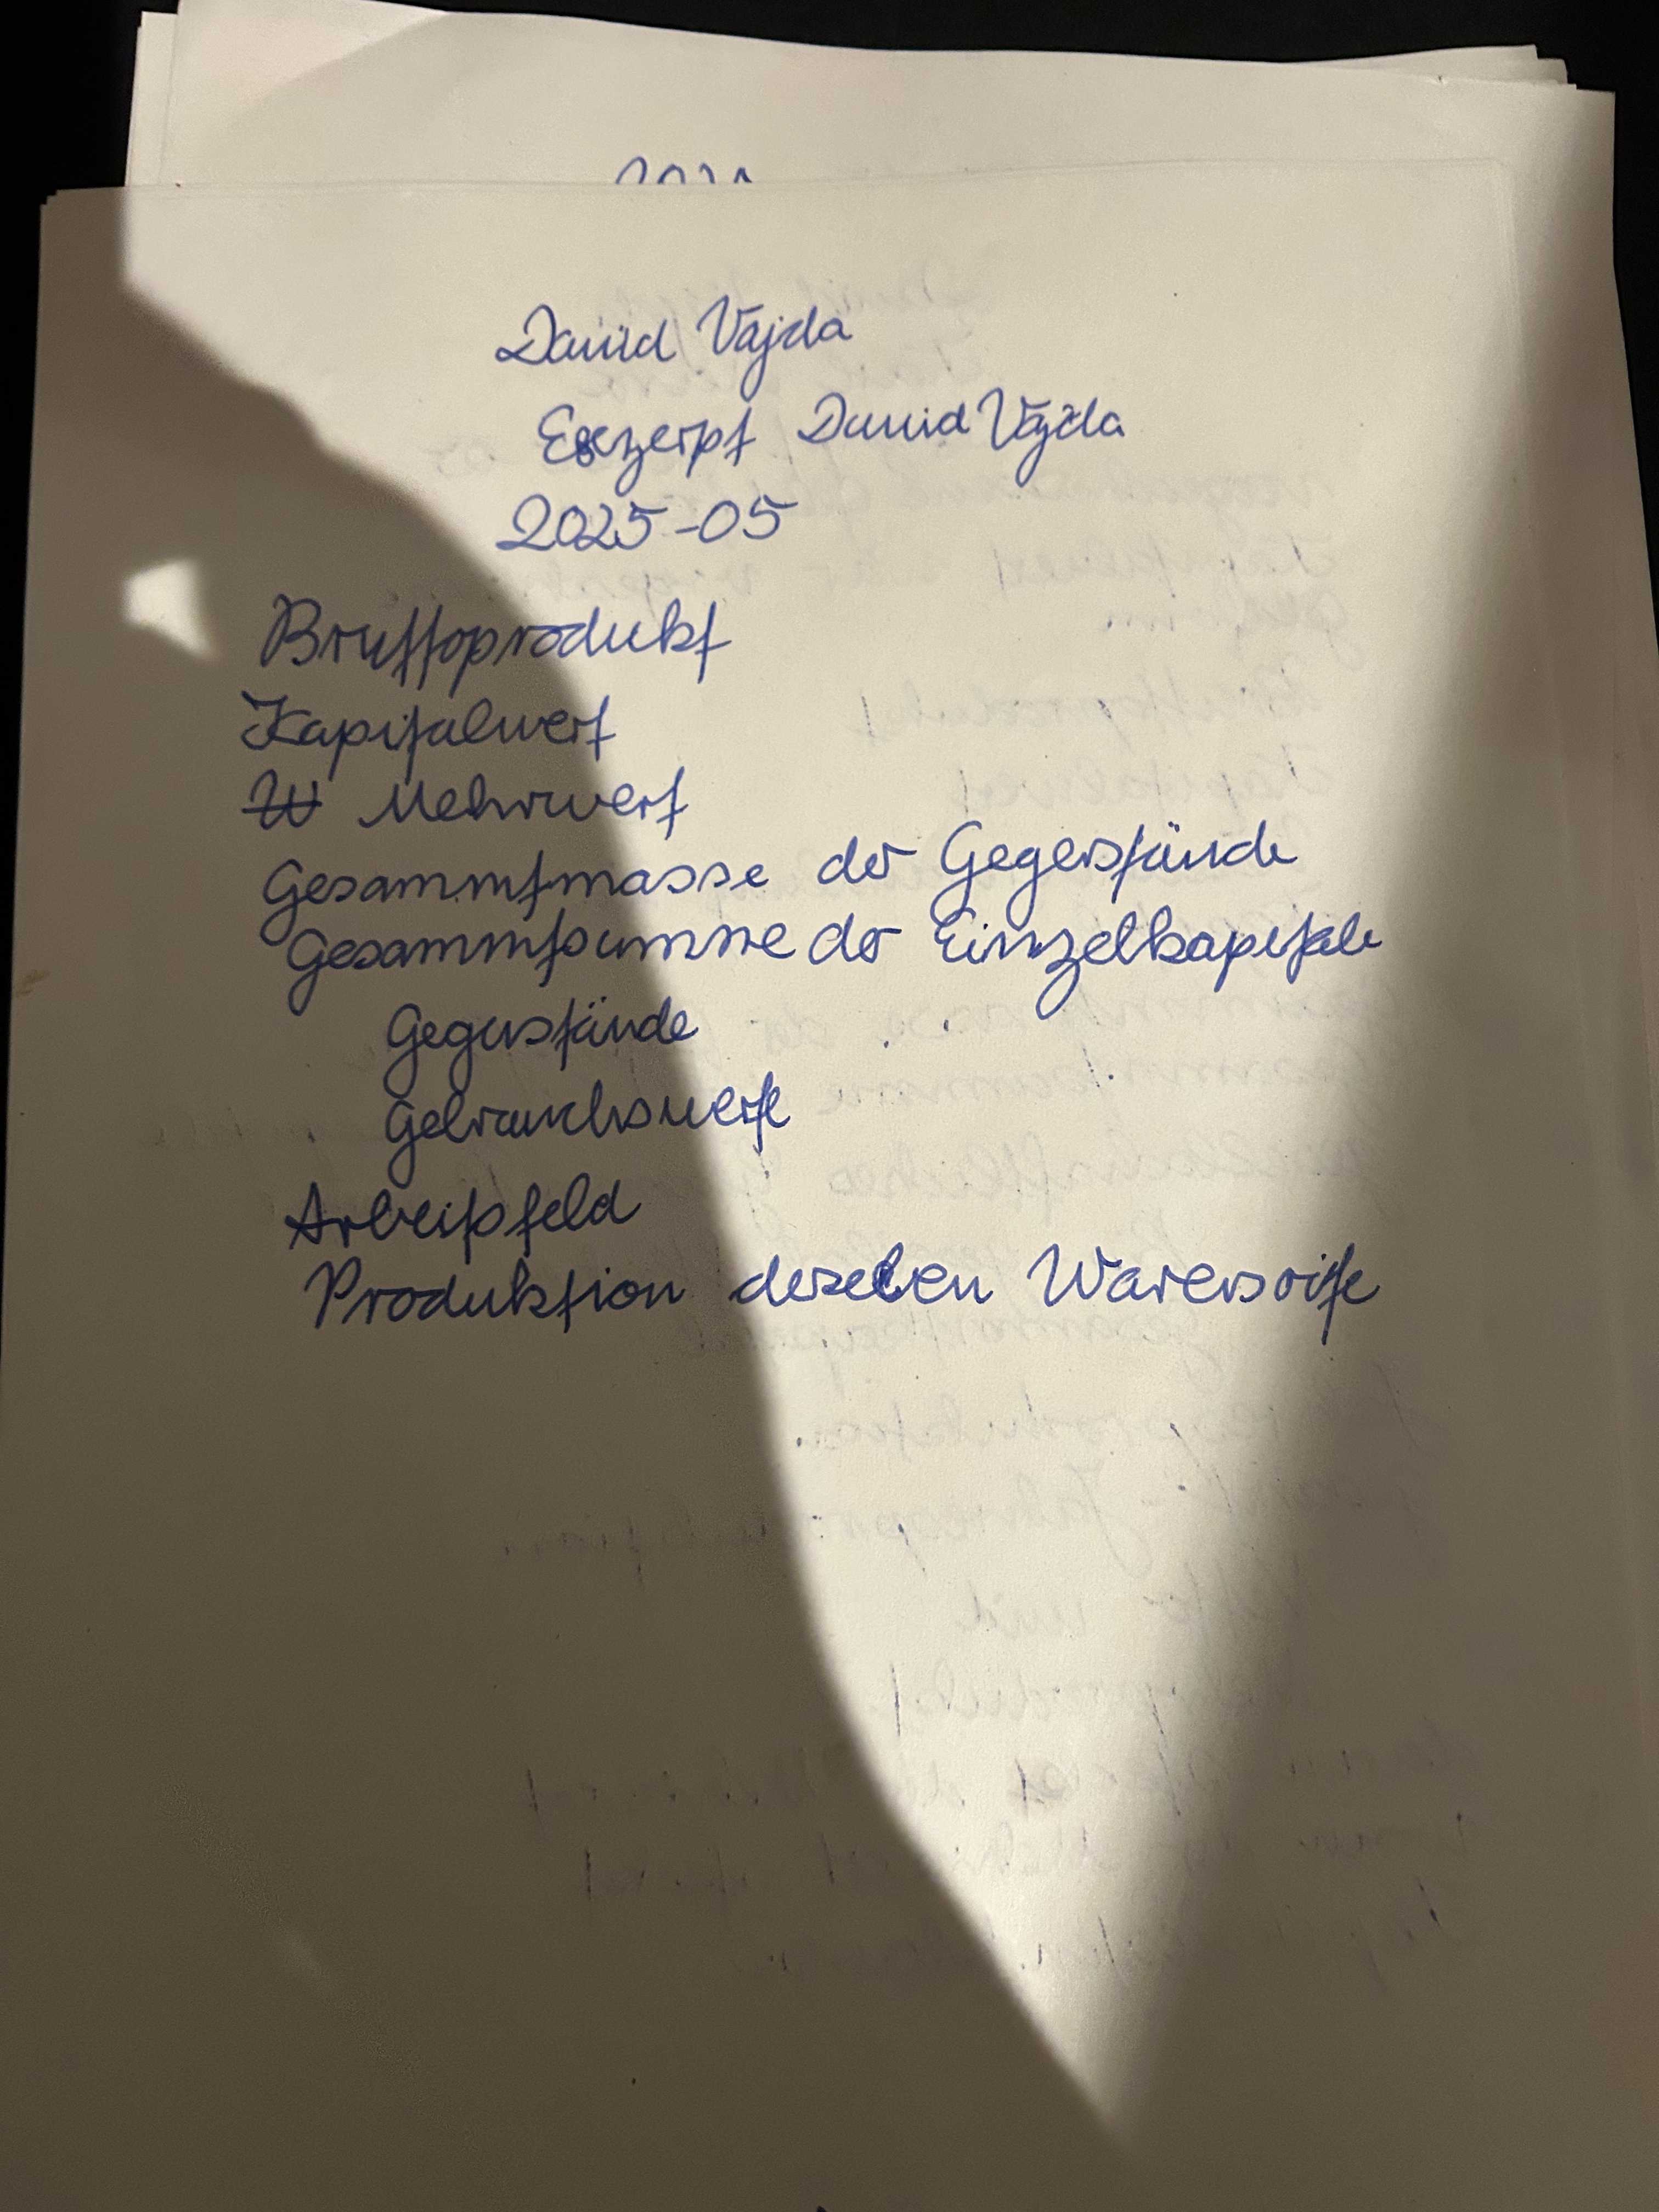 David Vajda
Exzerpt David Vajda
2025-05
Bruttoprodukt
Kapitalwert
W Mehrwert
Gesammtmasse der Gegenstände
Gesammtsumme der Einzelkapitale
Gegenstände
Gebrauchswerte
Arbeitsfeld
Produktion derselben Warensorte